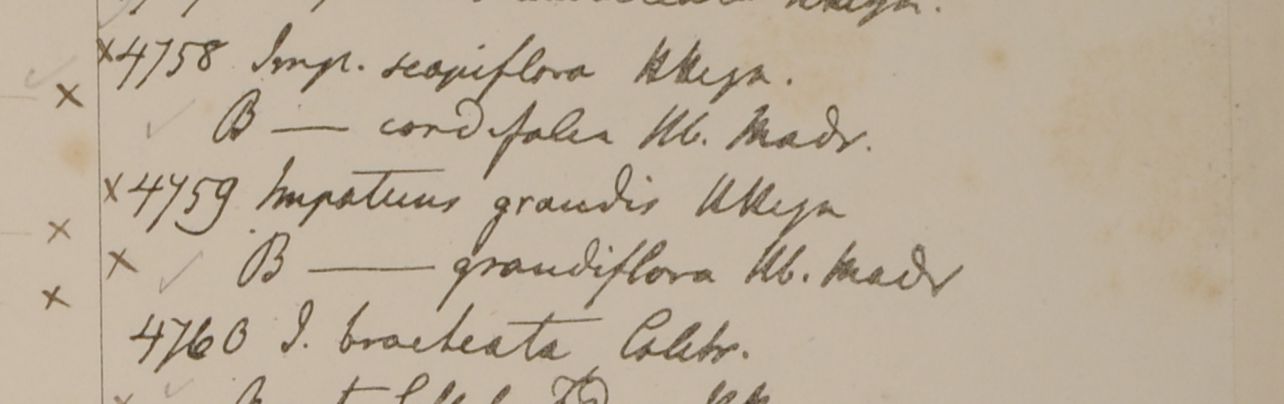 ×4758 Imp. scapiflora HHeyn.
B — cordifolia Hb. Madr.
×4759 Impatiens grandis HHeyn
× B — grandiflora Hb. Madr
4760 I. bracteata Colebr.